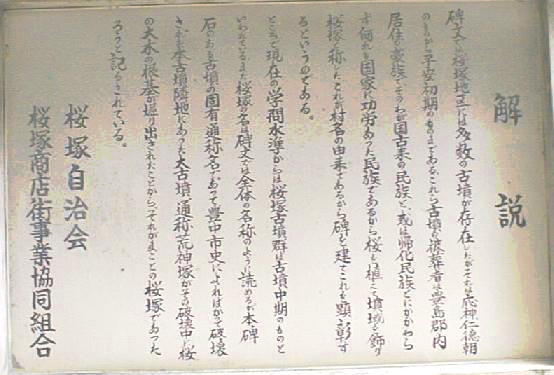 解説
碑文では桜塚地区には多数の古墳が存在したがそれは応神仁徳朝
のものから平安初期のものまである、これら古墳の被葬者は豊島郡内
居住の豪族でそのわが国古来の民族と、或は帰化民族とにかかわら
ず何れも国家に功労あった民族であるから桜を植えて墳域を飾り
桜塚と称したこれが村名の由来であるから碑を建てこれを顕彰す
るというのである。
ところで現在の学問水準からは桜塚古墳群は古墳中期のものと
いわれているまた桜塚の名は碑文では全体の名称のように読めるが本碑
石のある古墳の固有の通称名であって豊中市史によればかつて破壊
された本古墳隣地にあった大古墳、通称荒神塚がその破壊中に桜
の大木の根基が堀り出されたことから、それがまことの桜塚であった
ろうと記るされている。
桜塚自治会
桜塚商店街事業協同組合